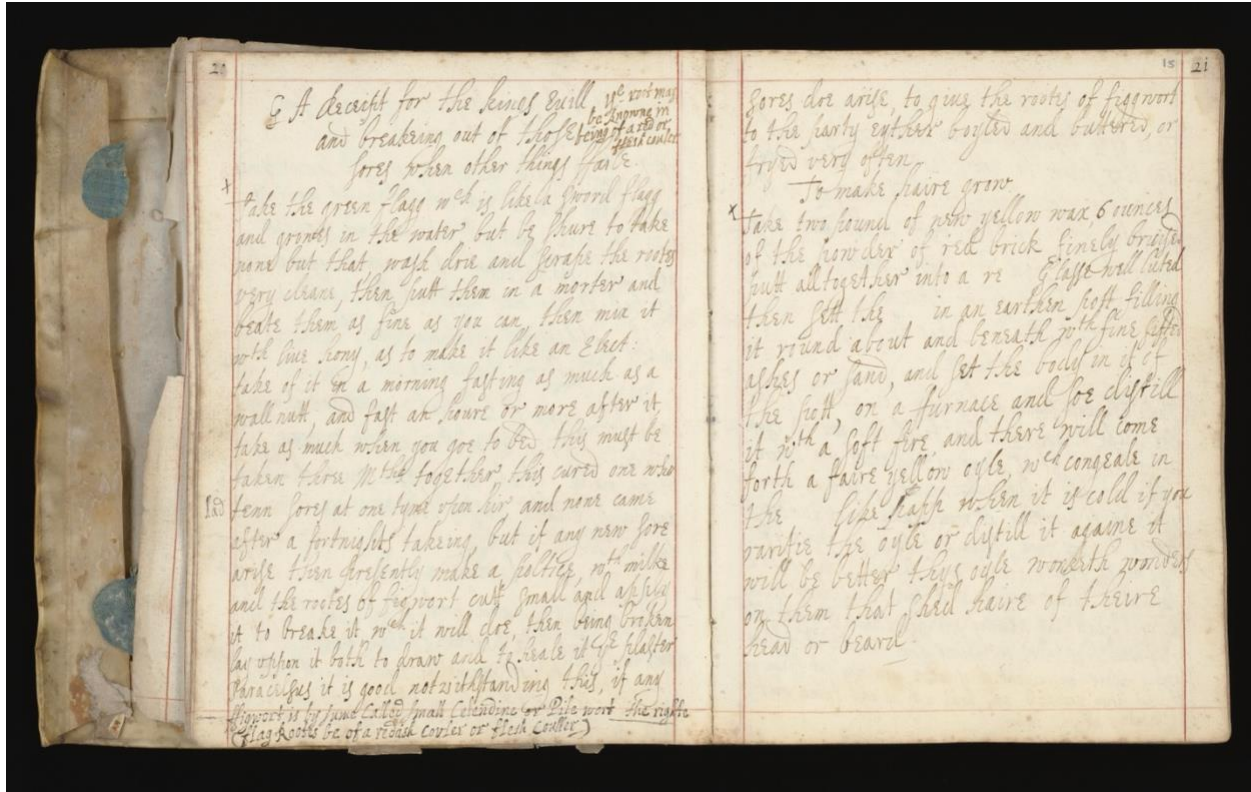 20
A Receipt for the kings Evill
ye root may
be knowne in
being of a red or
flesh couler
and breakeing out of those
sores when other things ffaile.
x
Take the green fflagg wch is like a sword flagg
and growes in the water but be shure to take
none but that, wash drie and scrape the rootes
very cleane, then putt them in a morter and
beate them as fine as you can then mix it
wth live hony, as to make it like an Elect:
take of it in a morning fasting as much as a
wall nutt, and fast an houre or more after it
take as much when you goe to bed this must be
taken three Mths together, this cured one who
had tenn sores at one tyme upon hir and none came
after a fortnights takeing, but if any new sore
arise then presently make a poltice, wth milke
and the rootes of figwort cutt small and apply
it to breake it wch it will doe, then being broken
lay uppon it both to draw and to heale it ye plaster
Paracelsus it is good notwithstanding this, if any
ffigwort is by sume Called small Celendine or Pile wort The righte
(fflag Rootes be of a redish couler or flesh Couller)
15 21
sores doe arise, to give the rootes of figgwort
to the party eyther boyled and buttered, or
fryed very often
To make haire grow
x
Take two pound of new yellow wax 6 ounces
of the powder of red brick finely bruised
putt alltogether into a re Glasse well luted
then sett the in an earthen pott filling
it round about and beneath wth fine sifted
ashes or sand, and set the body in it of
the pott, on a furnace and soe distill
it wth a soft fire, and there will come
forth a faire yellow oyle, wch congeale in
the like papp when it is cold if you
rarifie the oyle or distill it againe it
will be better thys oyle worketh wonders
on them that shed haire of theire
head or beard